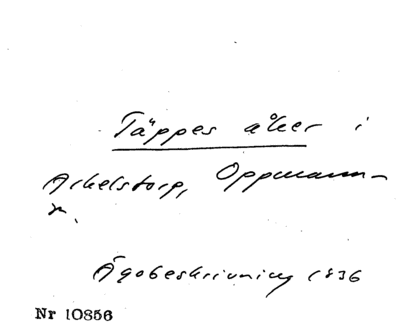 Täppes åker i
Arkelstorp, Oppmann-
a.
Ägobeskrivning 1836
Nr 10856